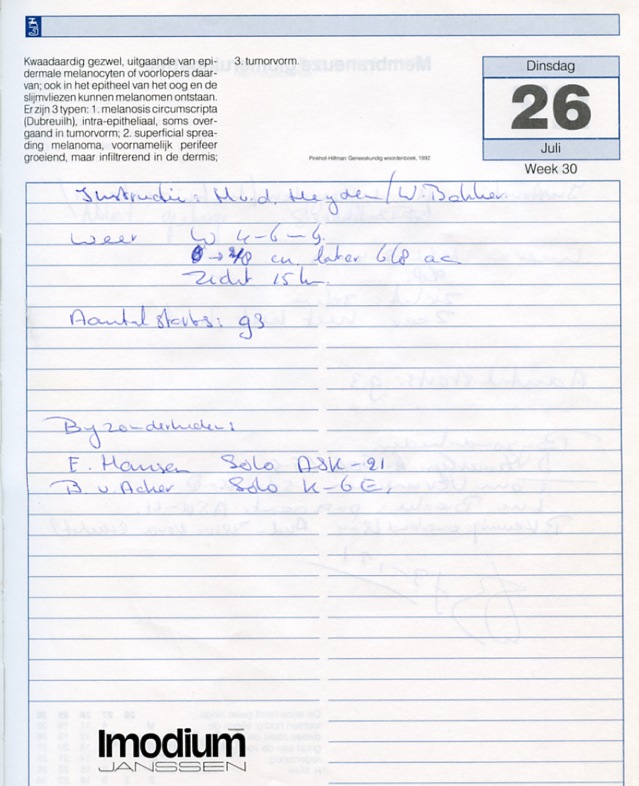 Kwaadaardig gezwel, uitgaande van epi-
dermale melanocyten of voorlopers daar-
van; ook in het epitheel van het oog en de
slijmvliezen kunnen melanomen ontstaan.
Er zijn 3 typen: 1. melanosis circumscripta
(Dubreuilh), intra-epitheliaal, soms over-
gaand in tumorvorm; 2. superficial sprea-
ding melanoma, voornamelijk perifeer
groeiend, maar infiltrerend in de dermis;
3. tumorvorm.
Pinkhof-Hilfman: Geneeskundig woordenboek, 1992
Dinsdag
26
Juli
Week 30
Instructie: H.v.d. Heyden / W. Bakker
Weer W 4-6-
→ 4/8 cu. later 6/8 ac
Zicht 15 km.
Aantal starts: 93
Byzonderheden:
E. Hansen Solo ASK-21
B. v. Acker Solo K-6E,
Imodium
JANSSEN